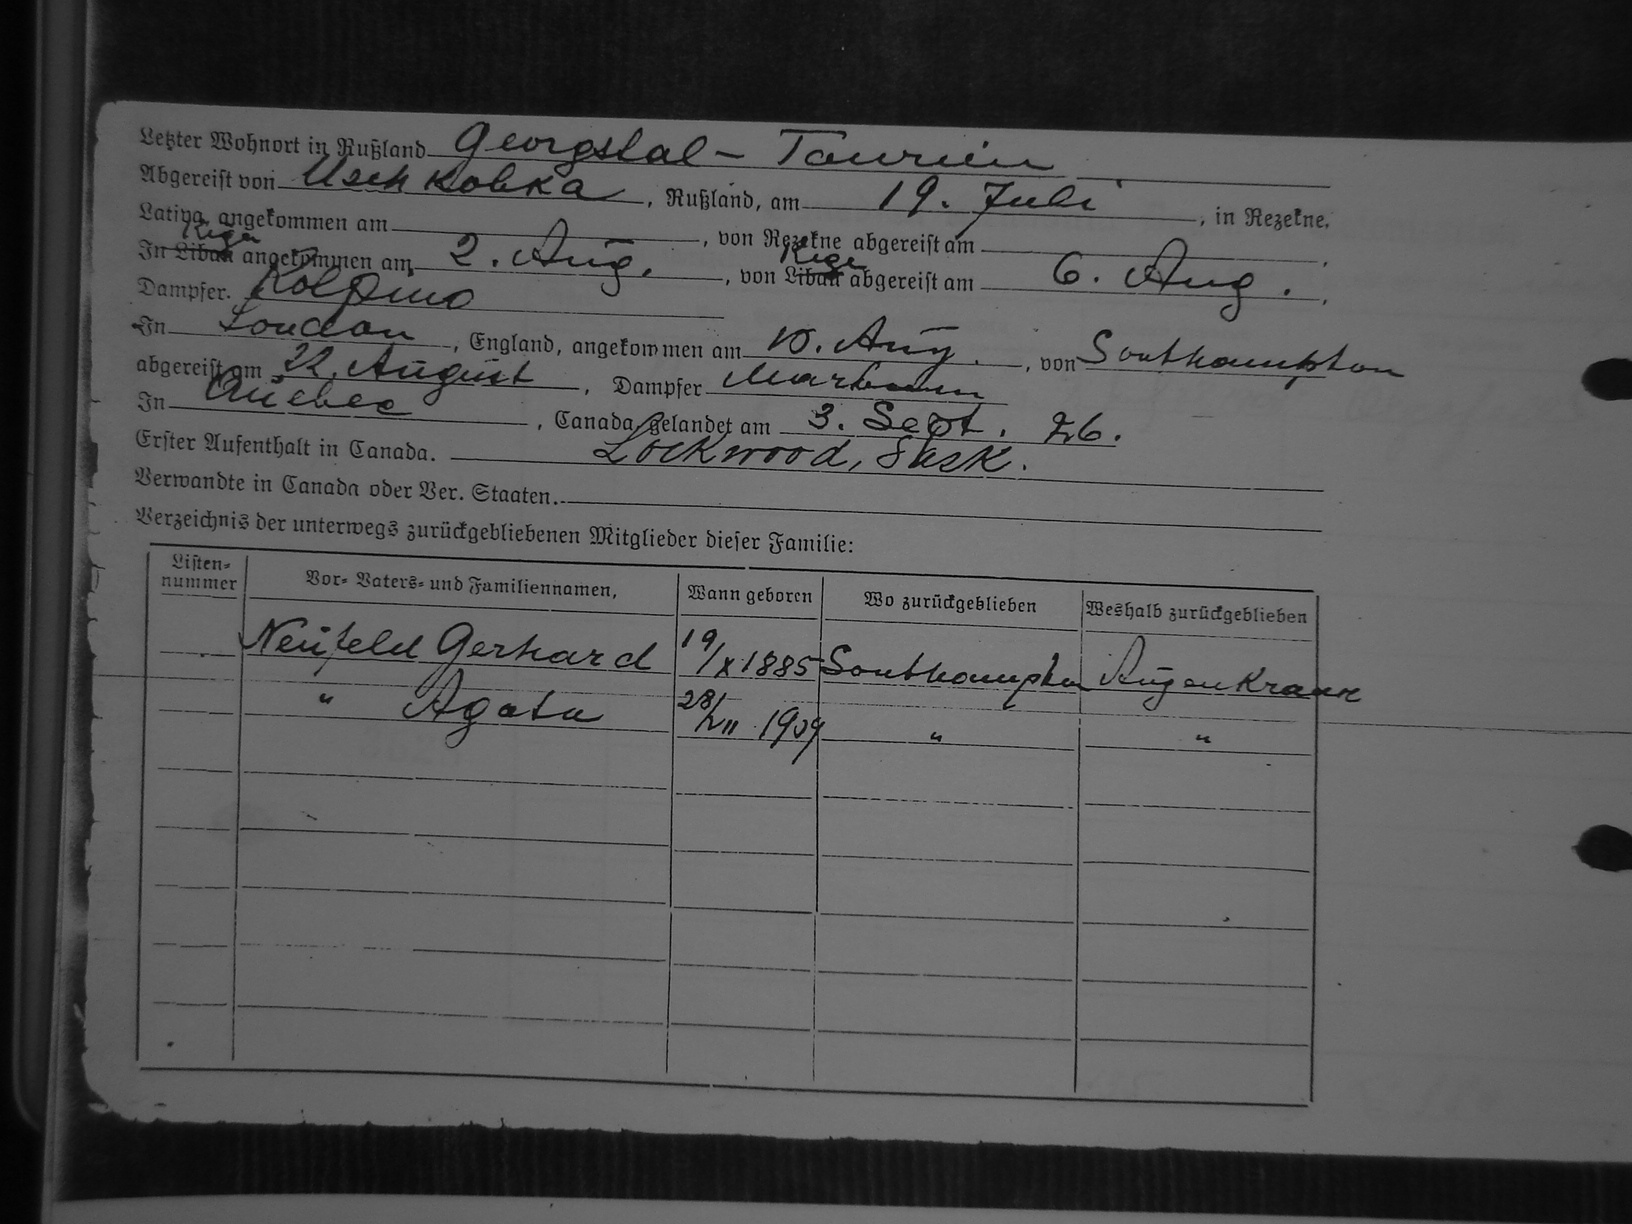 Letzter Wohnort in Rußland Georgstal - Taurien
Abgereist von Uschkalka, Rußland, am 19. Juli, in Rezekne,
Lativa, angekommen am , von Rezekne abgereist am ,
Riga Riga
In Libau angekommen am 2. Aug., von Libau abgereist am 6. Aug.,
Dampfer. Kolpino
In London, England, angekommen am 10. Aug., von Southampton
abgereist am 22. August, Dampfer
In Quebec, Canada gelandet am 3. Sept. 26.
Erster Aufenthalt in Canada. Lockwood, Sask.
Verwandte in Canada oder Ver. Staaten.
Verzeichnis der unterwegs zurückgebliebenen Mitglieder dieser Familie:
Listen-nummer Vor- Vaters- und Familiennamen, Wann geboren Wo zurückgeblieben Weshalb zurückgeblieben
Neufeld Gerhard 19/X 1885 Southampton Augenkrank
" Agata 28/VII 1909 " "